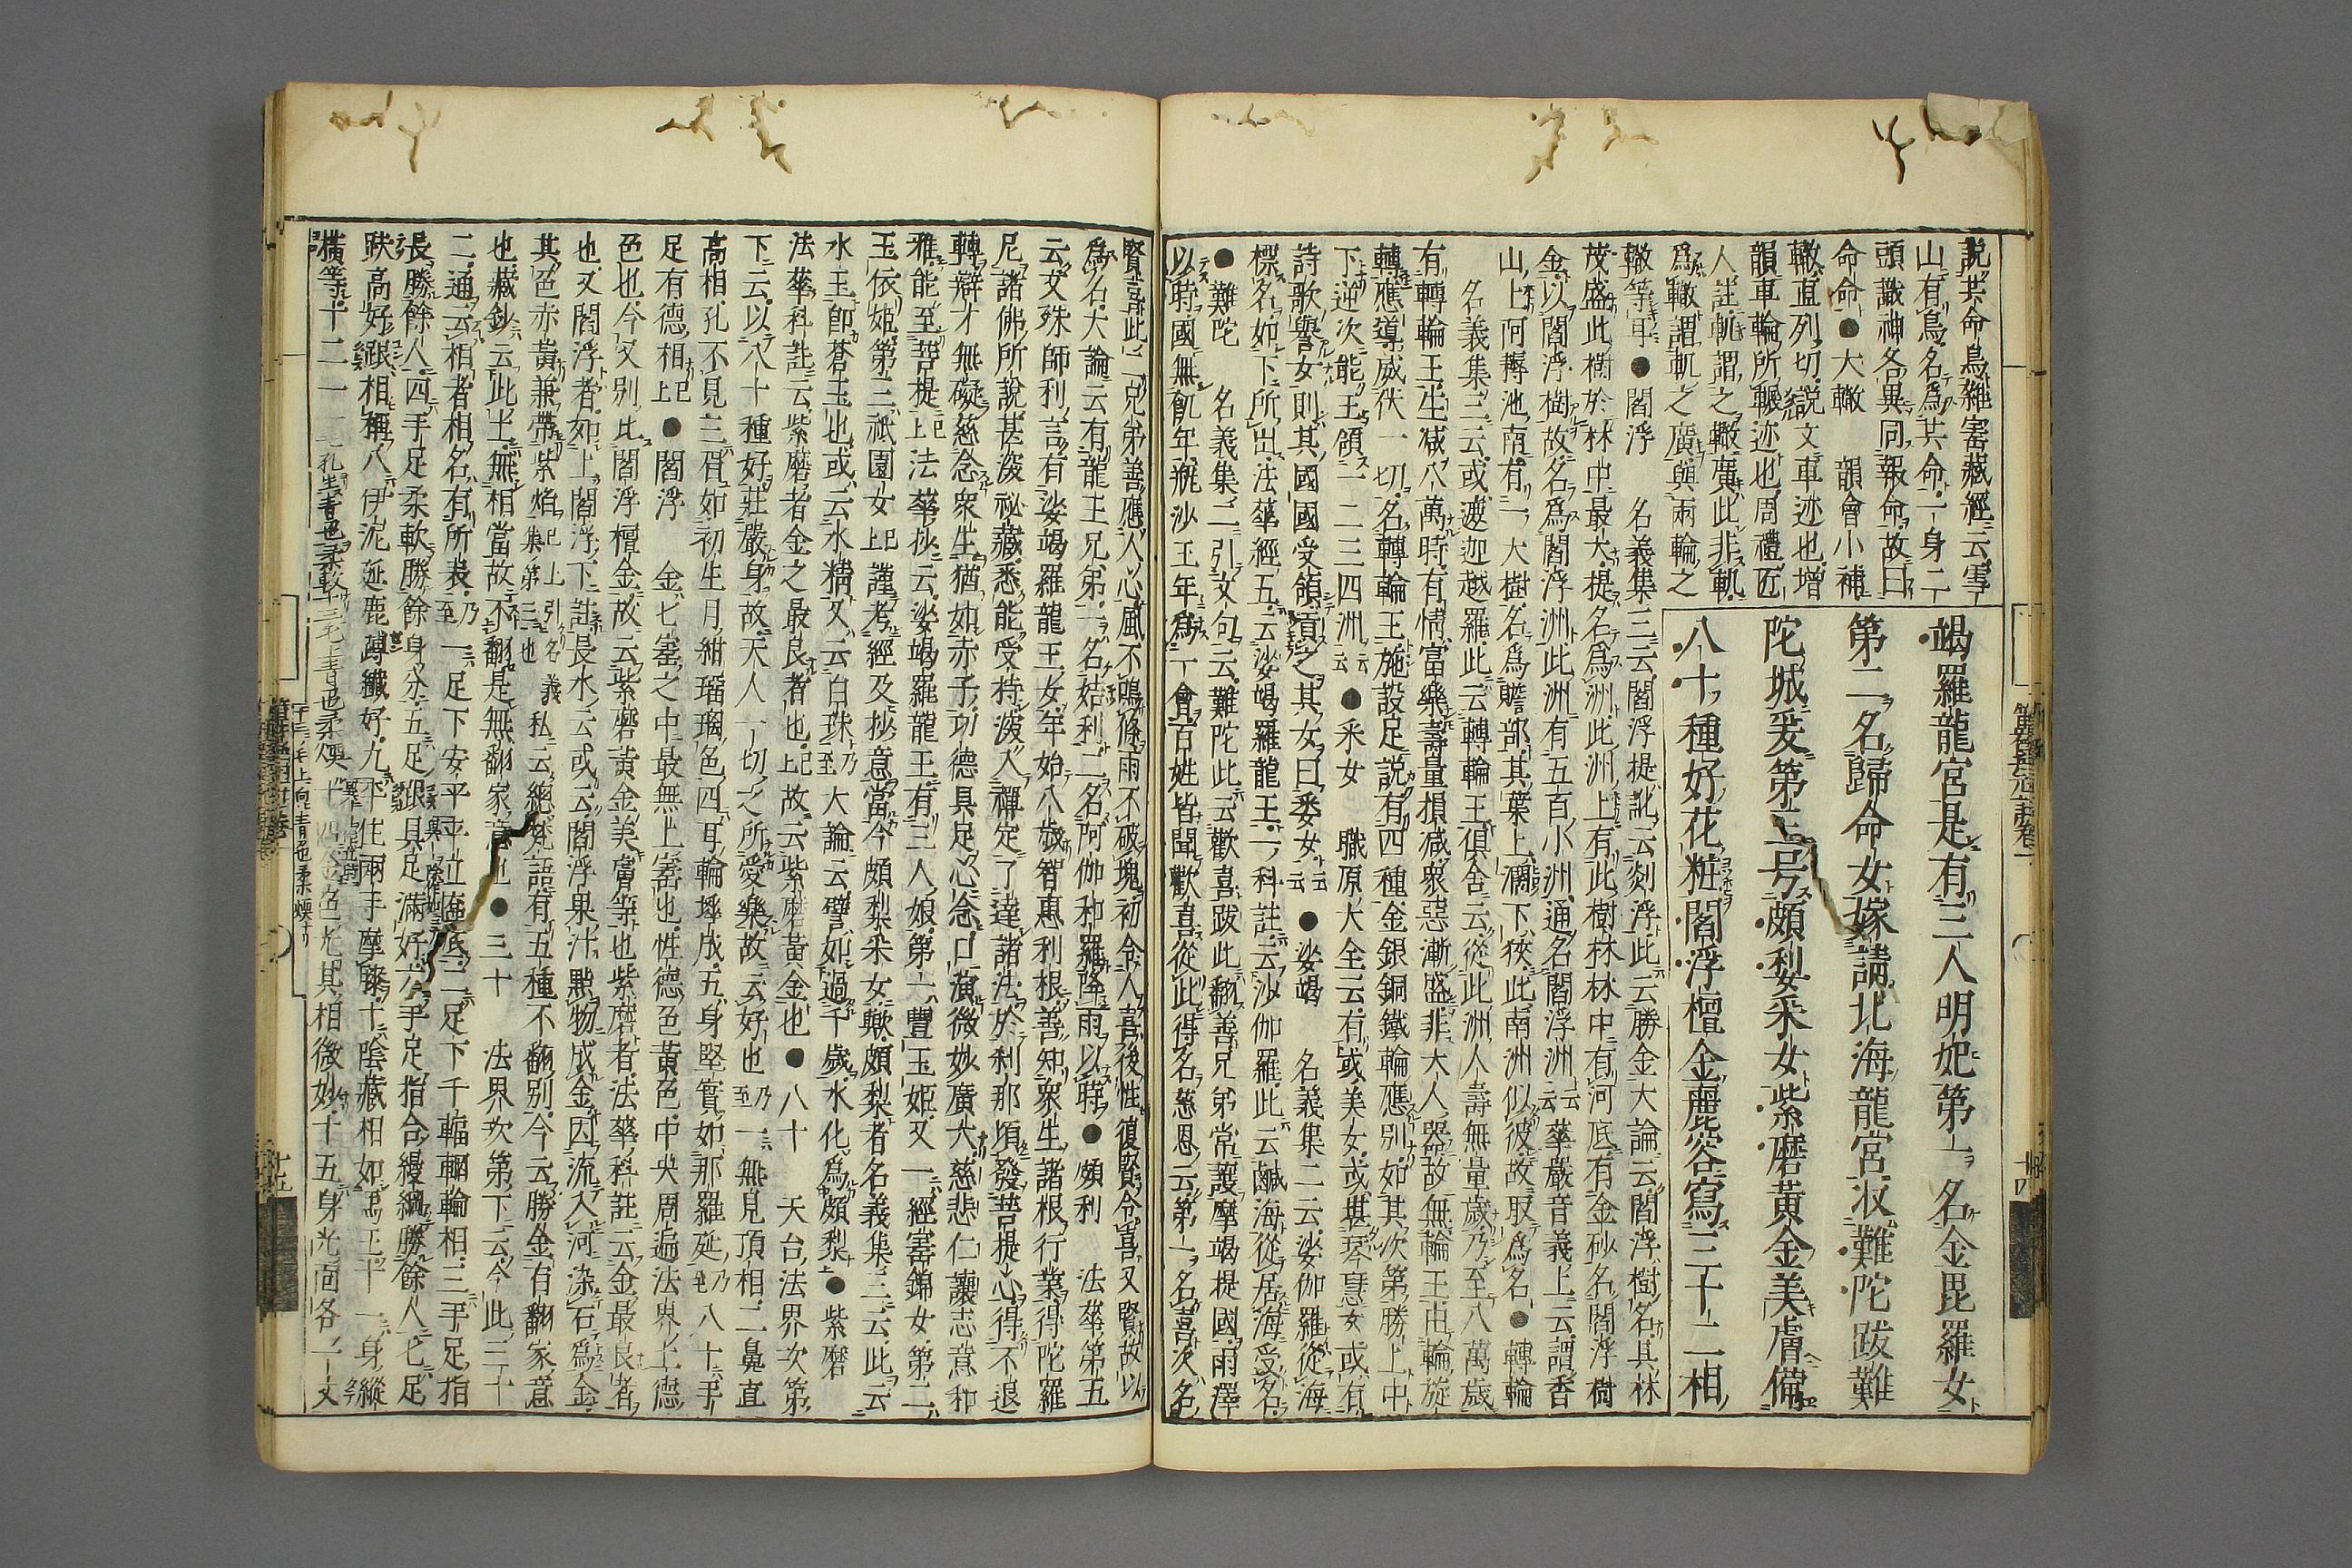 説共命鳥雜寳藏經云雪
山有鳥名爲共命一身二
頭識神各異同報命故曰
命命●大轍 韻會小補
轍直列切説文車迹也増
韻車輪所輾迹也周禮匠
人註軌謂之轍廣此非軌
爲轍謂軌之廣與兩輪之
竭羅龍宮是有三人明妃第一名金毘羅女
第二名歸命女嫁請北海龍宮沙難陀跋難
陀城爰第三号頗梨采女紫磨黃金美膚備
八十種好花粧閻浮檀金麗容寫三十二相
轍等耳●閻浮 名義集三云閻浮提訛云剡浮此云勝金大論云閻浮樹名其林
茂盛此樹於林中最大提名爲洲此洲上有此樹林林中有河底有金砂名閻浮樹
金以閻浮樹故名爲閻浮洲此洲有五百小洲通名閻浮洲云云華嚴音義上云謂香
山上阿耨池南有一大樹名爲贍部其葉上濶下狹此南洲似彼故取爲名●轉輪
名義集三云或遮迦越羅此云轉輪王俱舍云從此洲人壽無量歲乃至八萬歲
有轉輪王生減八萬時有情富樂壽量損減衆惡漸盛非大人器故無輪王由輪旋
轉應導威伏一切名轉輪王施設足説有四種金銀銅鐵輪應別如其次第勝上中
下逆次能王領一二三四洲云云●采女 職原大全云有或美女或堪琴慧女或有
詩歌譽女則其國國受領貢之其女曰采女云云●娑竭 名義集二云娑伽羅從海
標名如下所出法華經五云娑竭羅龍王一科註云沙伽羅此云鹹海從居海受名
●難陀 名義集二引文句云難陀此云歡喜跋此翻善兄弟常護摩竭提國雨澤
以時國無飢年瓶沙王年爲一會百姓皆聞歡喜從此得名慈恩云第一名喜次名
賢喜此二兄弟善應人心風不鳴條雨不破塊初令人喜後性復賢令喜又賢故以
爲名大論云有龍王兄弟一名姞利二名阿伽和羅降雨以時●頗利 法華第五
云文殊師利言有娑竭羅龍王女年始八歲智惠利根善知衆生諸根行業得陀羅
尼諸佛所説甚深祕藏悉能受持深入禪定了達諸法於刹那頃發菩提心得不退
轉辯才無礙慈念衆生猶如赤子功德具足心念口演微妙廣大慈悲仁讓志意和
雅能至菩提上已法華抄云娑竭羅龍王有三人娘第一豐玉姫又一經寳錦女第二
玉依姫第三祇園女上已謹考經及抄意當今頗梨采女歟頗梨者名義集三云此云
水玉卽蒼玉也或云水精又云白珠乃至大論云譬如過千歲水化爲頗梨●紫磨
法華科註云紫磨者金之最良者也上已故云紫磨黃金也●八十 天台法界次第
下云以八十種好莊嚴身故天人一切之所愛樂故云好也乃至一無見頂相二鼻直
高相孔不見三眉如初生月紺瑠璃色四耳輪埵成五身堅實如那羅延乃至八十手
足有德相上已●閻浮 金七寳之中最無上寳也性德色黃色中央周遍法界上德
色也今又別此閻浮檀金故云紫磨黃金美膚等也紫磨者法華科註云金最良者
也又閻浮者如上閻浮下註長水云或云閻浮果汁點物成金因流入河染石爲金
其色赤黃兼帶紫焰上已引名義集第三也私云總梵語有五種不翻別今云勝金有翻家意
也藏鈔云此土無相當故不翻是無翻家意也●三十 法界次第下云今此三十
二通云相者相名有所表乃至一足下安平立二足下千輻輞輪相三手足指
長勝餘人四手足柔軟勝餘身分五足跟具足滿好六手足指合縵網勝餘人七足
趺高好跟相稱八伊泥延鹿𨄔纖好九平住兩手摩膝十陰藏相如馬王十一身縱
橫等十二一一毛孔生青色柔輭十三毛上向青色柔輭十四金色光其相微妙十五身光面各一丈